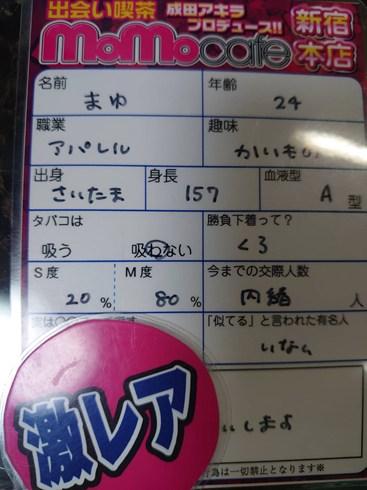 出会い喫茶 成田アキラ プロデュース!! 新宿本店
MoMocafe
名前 年齢
まゆ 24
職業 趣味
アパレル かいもの
出身 身長 血液型
さいたま 157 A 型
タバコは 勝負下着って?
吸う 吸わない くろ
S度 M度 今までの交際人数
20% 80% 内緒 人
「似てる」と言われた有名人
いない
激レア
します
為は一切禁止となります※